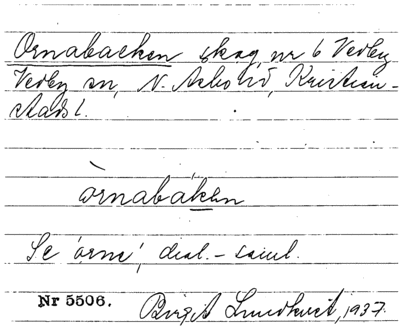 Ornabacken skog, nr 6 Vedby
Vedby sn, N. Åsbo hd, Kristian-
stads l.
òrnabáken
Se 'orne', dial.-saml.
Nr 5506.
Birgit Lundkvist, 1937.